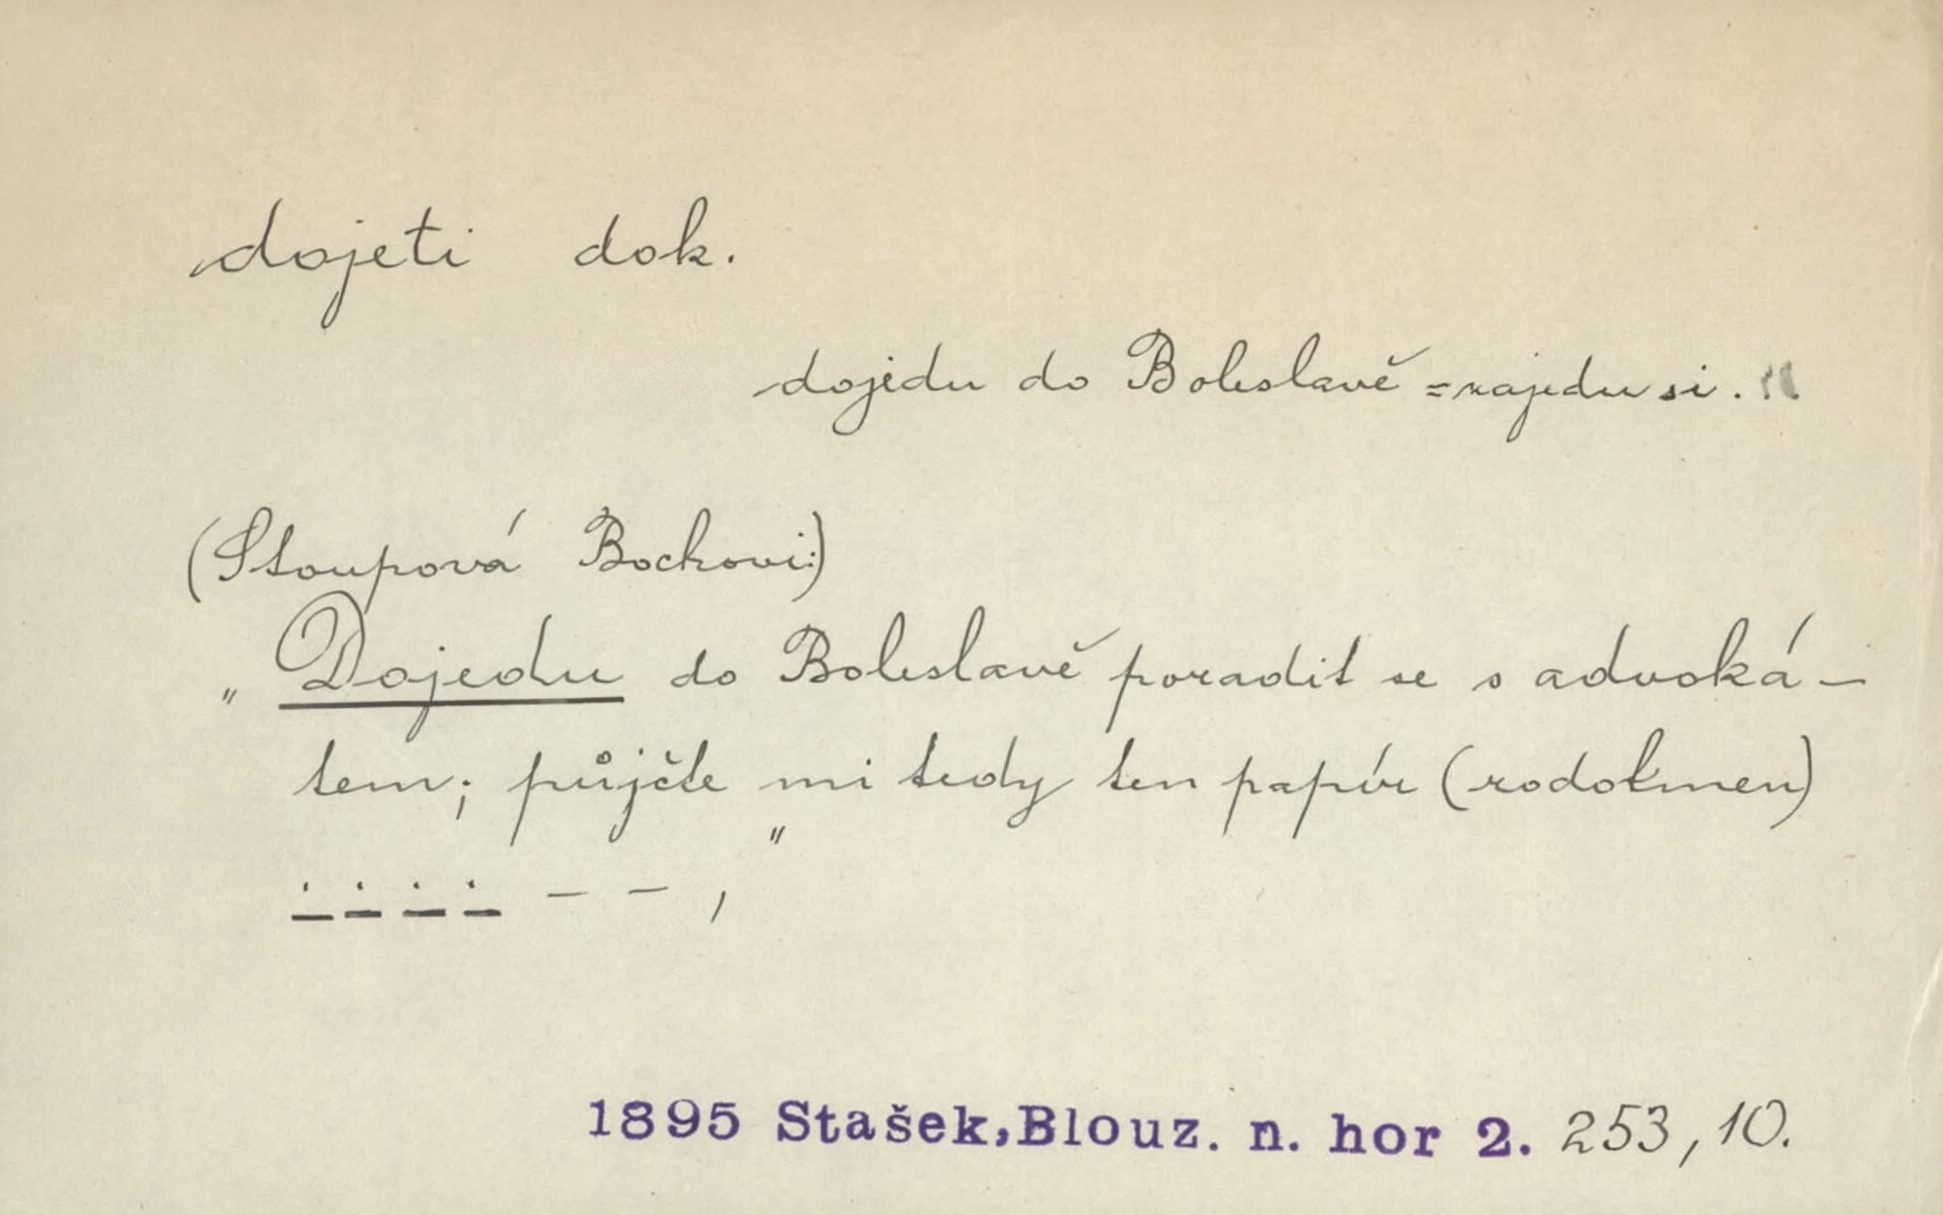 dojeti dok.
dojedu do Boleslavě = zajedu si.
(Stoupová Bochovi:)
„Dojedu do Boleslavě poradit se s advoká-
tem; půjčte mi tedy ten papír (rodokmen)
. . . . – – , "
1895 Stašek, Blouz. n. hor 2. 253, 10.